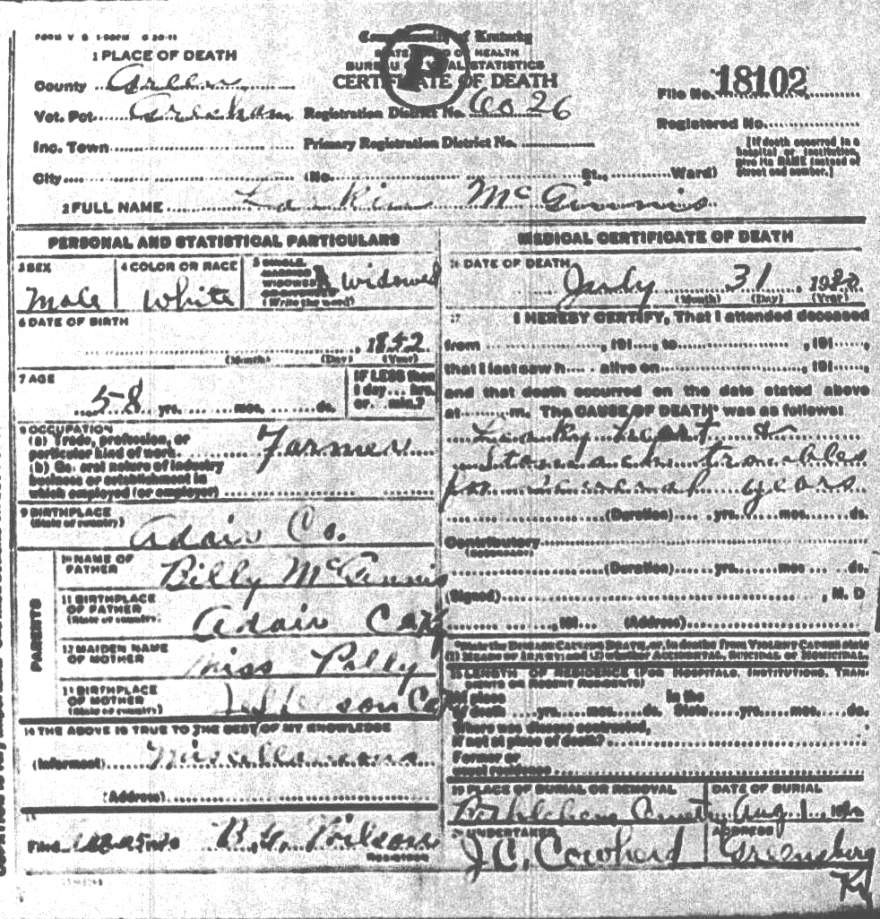 FORM V S
Commonwealth of Kentucky
STATE BOARD OF HEALTH
BUREAU OF VITAL STATISTICS
CERTIFICATE OF DEATH
P
1 PLACE OF DEATH
County Green
Vot. Pct. Gresham Registration District No. 6026
File No. 18102
Registered No.
Inc. Town Primary Registration District No.
[If death occurred in a hospital or institution, give its NAME instead of street and number.]
City (No. St., Ward)
2 FULL NAME Larkin McGinnis
PERSONAL AND STATISTICAL PARTICULARS
3 SEX
Male
4 COLOR OR RACE
White
5 SINGLE
MARRIED
WIDOWED
OR DIVORCED
(Write the word)
widowed
6 DATE OF BIRTH
, 1852
(Month) (Day) (Year)
7 AGE
58 yrs. mos. ds.
IF LESS than
1 day hrs.
or min.?
8 OCCUPATION
(a) Trade, profession, or
particular kind of work Farmer
(b) General nature of industry
business or establishment in
which employed (or employer)
9 BIRTHPLACE
(State or country)
Adair Co.
PARENTS
10 NAME OF
FATHER Billy McGinnis
11 BIRTHPLACE
OF FATHER
(State or country) Adair Co Ky
12 MAIDEN NAME
OF MOTHER Miss Polly
13 BIRTHPLACE
OF MOTHER
(State or country)
14 THE ABOVE IS TRUE TO THE BEST OF MY KNOWLEDGE
(Informant) Miscellaneous
(Address)
15
Filed
REGISTRAR
MEDICAL CERTIFICATE OF DEATH
16 DATE OF DEATH
July 31, 19
(Month) (Day) (Year)
17 I HEREBY CERTIFY, That I attended deceased
from , 191 , to , 191 ,
that I last saw h alive on , 191 ,
and that death occurred on the date stated above
at m. The CAUSE OF DEATH was as follows:
Leaky heart &
Stomach troubles
for several years
(Duration) yrs. mos. ds.
Contributory
(Secondary)
(Duration) yrs. mos. ds.
(Signed) , M. D
, 191 (Address)
*State the DISEASE CAUSING DEATH, or, in deaths from VIOLENT CAUSES state
(1) MEANS OF INJURY; and (2) whether ACCIDENTAL, SUICIDAL or HOMICIDAL
18 LENGTH OF RESIDENCE (FOR HOSPITALS, INSTITUTIONS, TRAN-
SIENTS OR RECENT RESIDENTS)
At place In the
of death yrs. mos. ds. State yrs. mos. ds.
Where was disease contracted,
if not at place of death?
Former or
usual residence
19 PLACE OF BURIAL OR REMOVAL
DATE OF BURIAL
Aug 1
20 UNDERTAKER
J. C. Cowherd
ADDRESS
Greensburg
Ky